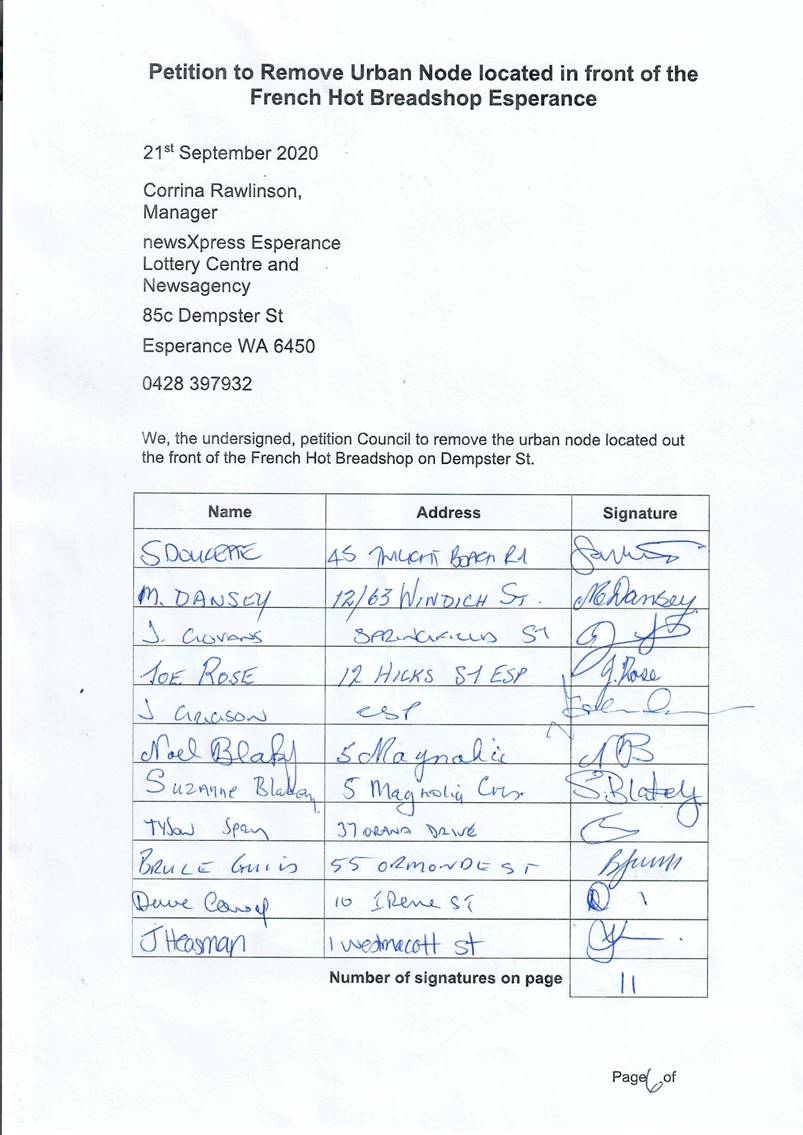 Petition to Remove Urban Node located in front of the
French Hot Breadshop Esperance
21st September 2020
Corrina Rawlinson,
Manager
newsXpress Esperance
Lottery Centre and
Newsagency
85c Dempster St
Esperance WA 6450
0428 397932
We, the undersigned, petition Council to remove the urban node located out
the front of the French Hot Breadshop on Dempster St.
Name Address Signature
S DOUCETTE 45 TWILIGHT BEACH Rd
M. DANSEY 12/63 WINDICH ST. M Dansey
J. ST
JOE ROSE 12 HICKS ST ESP J. Rose
J ESP
Noel Blaky 5 Magnolia NB
Suzanne 5 Magnolia Cres. S. Blakely
Tyson DRIVE
BRUCE 55 ORMONDE ST
Dave 10 Irene ST
J Heasman 1 Westmacott st
Number of signatures on page 11
Page 6 of